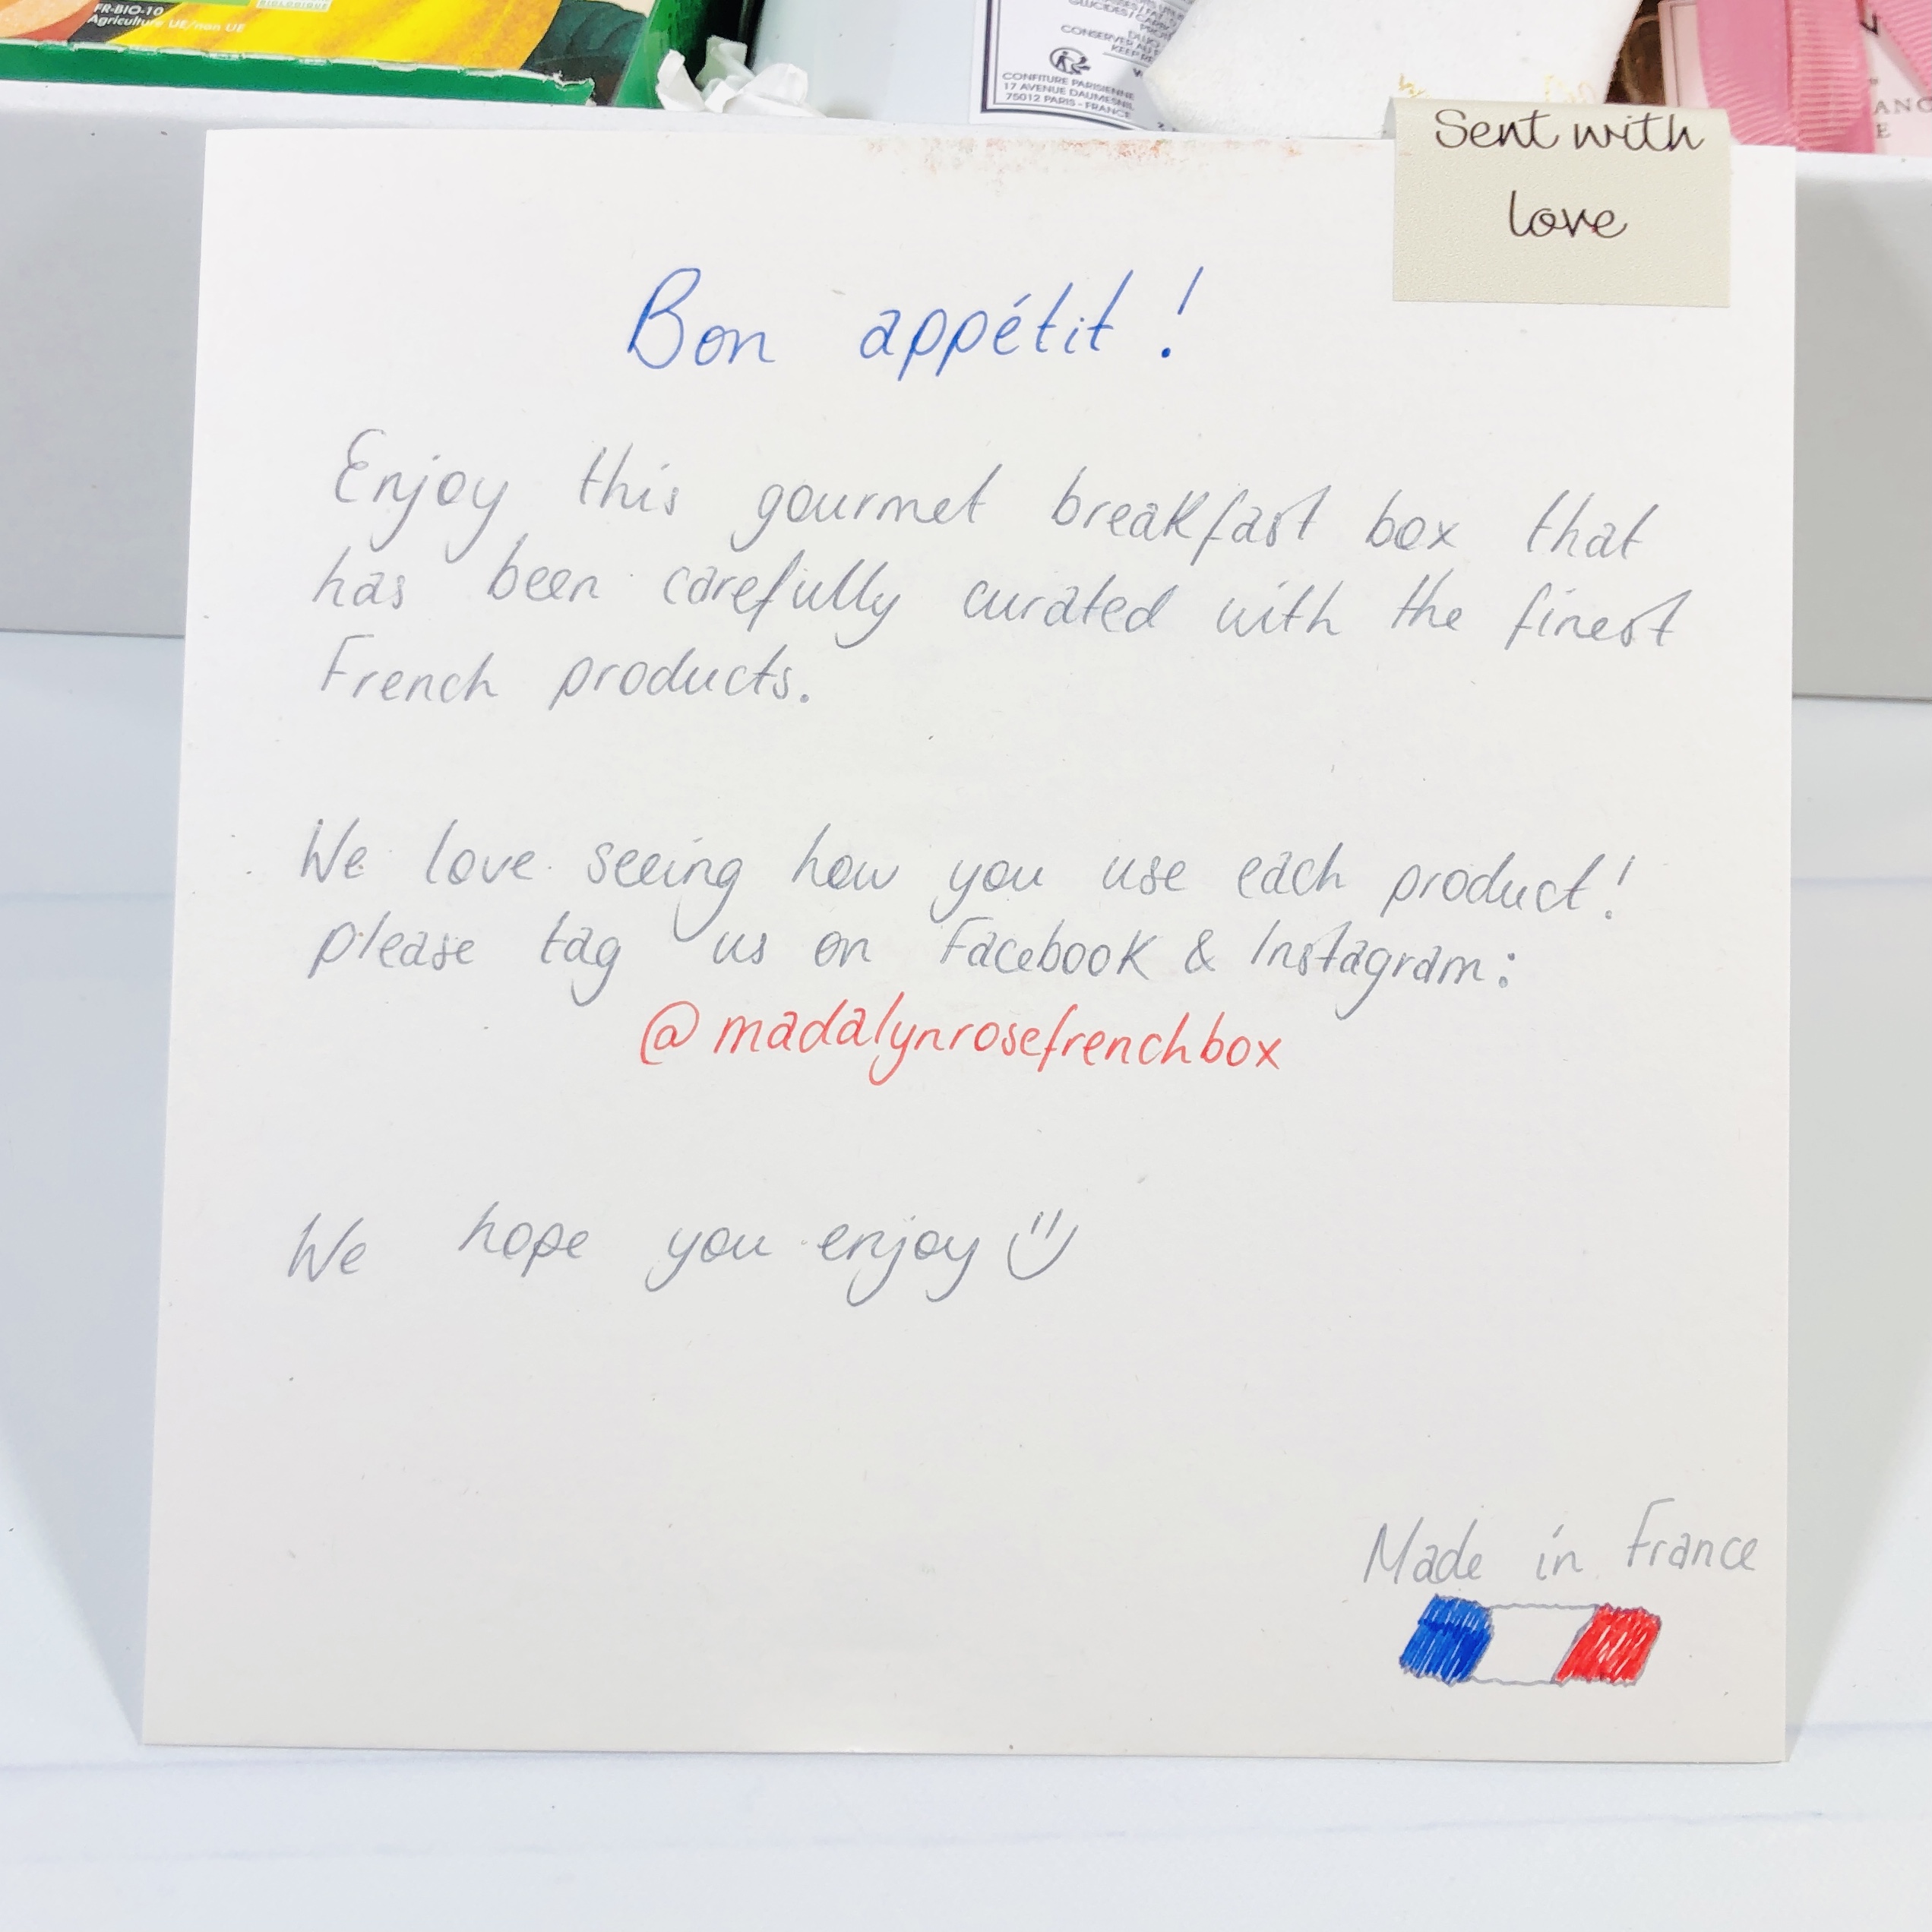 FR-BIO-10
Agriculture UE/non UE
CONSERVER AU
KEEP RE
CONFITURE PARISIENNE
17 AVENUE DAUMESNIL
75012 PARIS - FRANCE
Sent with
love
Bon appétit !
Enjoy this gourmet breakfast box that
has been carefully curated with the finest
French products.
We love seeing how you use each product!
please tag us on Facebook & Instagram:
@madalynrosefrenchbox
We hope you enjoy
Made in France